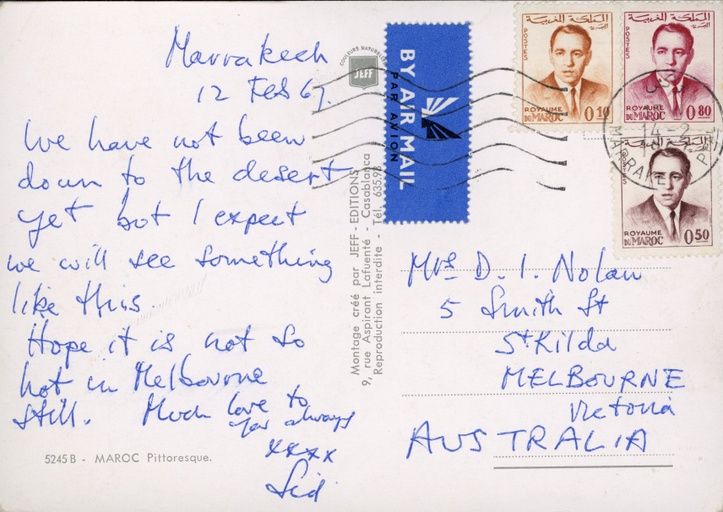 Marrakech
12 Feb 67.
We have not been
down to the desert
yet but I expect
we will see something
like this.
Hope it is not so
hot in Melbourne
still. Much love to
you always
xxxx
Sid
5245 B - MAROC Pittoresque.
COULEURS NATURELLES
JEFF
Montage créé par JEFF - EDITIONS
9, rue Aspirant Lafuente - Casablanca
Reproduction interdite - Tél. 635.92
BY AIR MAIL
PAR AVION
المملكة المغربية
البريد
POSTES
ROYAUME
DU MAROC
0,10
المملكة المغربية
البريد
POSTES
ROYAUME
DU MAROC
0,80
المملكة المغربية
POSTES
ROYAUME
DU MAROC
0,50
14-2
MARRAKECH
Mrs D. I. Nolan
5 Smith St
St Kilda
MELBOURNE
Victoria
AUSTRALIA